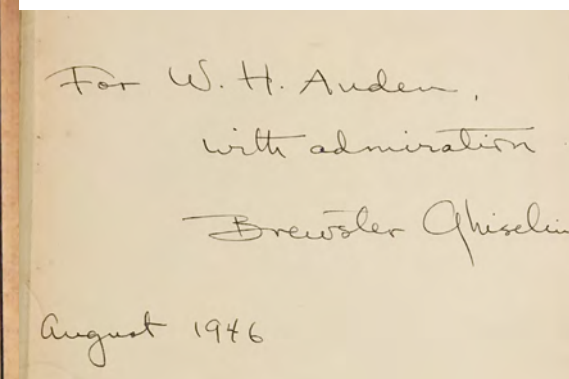 For W. H. Auden,
with admiration
Brewster Ghiselin
August 1946